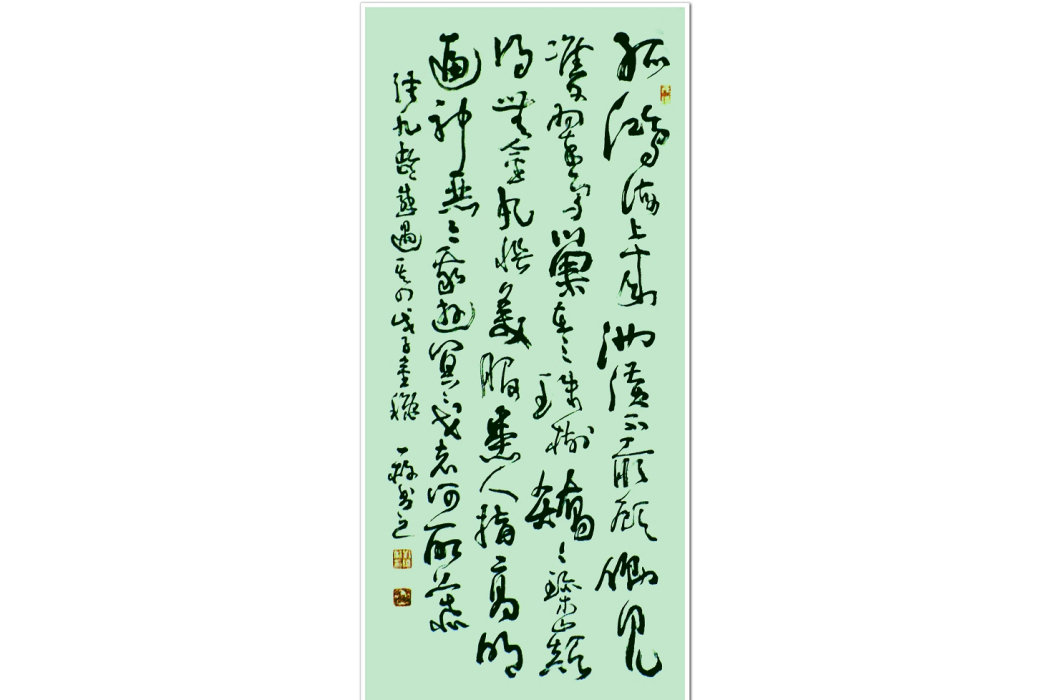 孤鴻海上來池潢不敢顧側見
雙翠鳥巢在三珠樹矯〻珎木巔
得無金丸懼美服患人指高明
逼神惡今我遊冥〻弋者何所慕
張九齡感遇其四戊子金穐 一書之